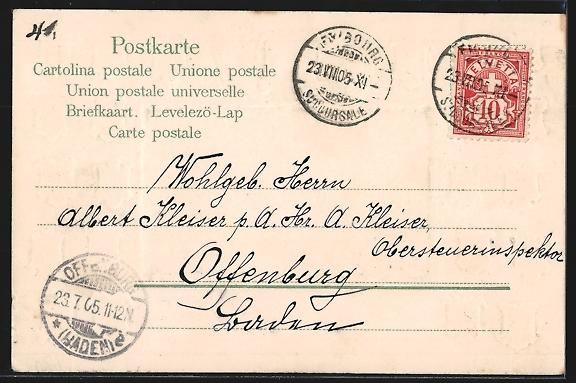 41.
Postkarte
Cartolina postale Unione postale
Union postale universelle
Briefkaart. Levelező-Lap
Carte postale
FRIBOURG
23.VII.05.XI
SUCCURSALE
FRIBOURG
23.VII.05.XI
HELVETIA
FRANCO
10
Wohlgeb. Herrn
Albert Kleiser p. A. Hr. A. Kleiser,
Obersteuerinspektor
Offenburg
Baden
OFFENBURG
23.7.05.11-12N.
* (BADEN)